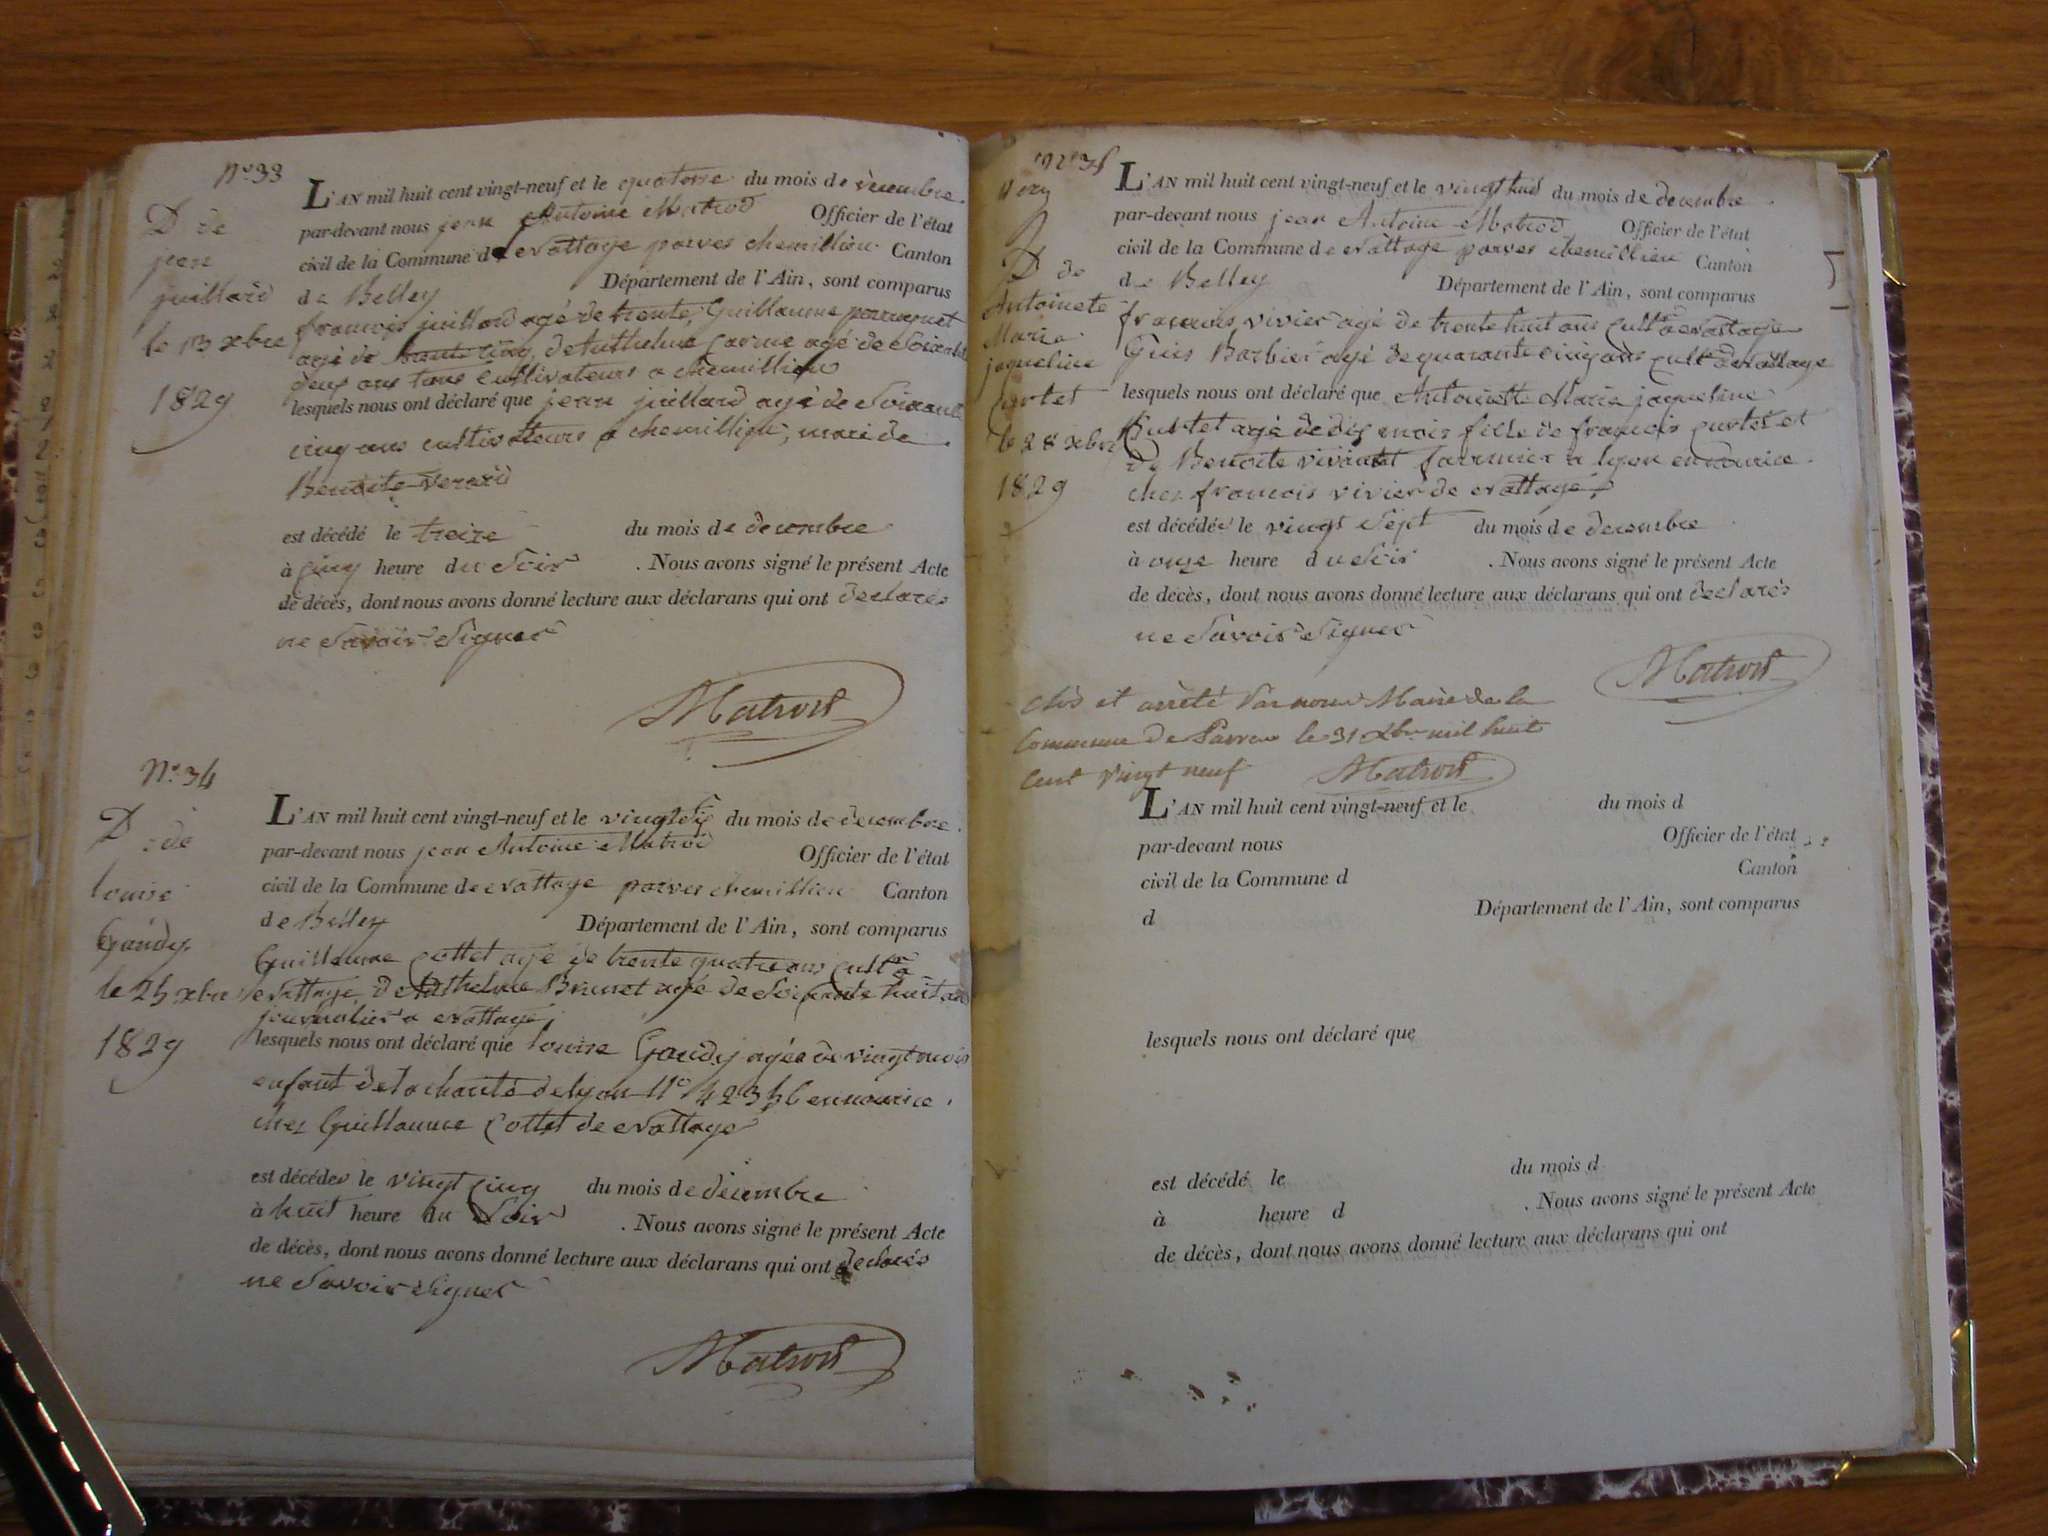 N° 33
D de
jean
juillard
le 13 xbre
1829
L'AN mil huit cent vingt-neuf et le quatorze du mois de decembre
par-devant nous jean Antoine Matrod Officier de l'état
civil de la Commune de nattage parves chemillieu Canton
de Belley Département de l'Ain, sont comparus
francois juillard agé de trente, Guillaume
agé de trente cinq, de Anthelme agé de Soixante
deux ans tous Cultivateurs a chemillieu
lesquels nous ont déclaré que jean juillard agé de Soixante
cinq ans cultivateurs a chemillieu, mari de
Benoite
est décédé le treize du mois de decembre
à cinq heure du Soir . Nous avons signé le présent Acte
de décès, dont nous avons donné lecture aux déclarans qui ont declarés
ne Savoir Signer
Matrod
N° 34
D de
louise
Gaudy
le 25 xbre
1829
L'AN mil huit cent vingt-neuf et le vingt Six du mois de decembre
par-devant nous jean Antoine Matrod Officier de l'état
civil de la Commune de nattage parves chemillieu Canton
de Belley Département de l'Ain, sont comparus
Guillaume Cottet agé de trente quatre ans Cultr a
nattage, de Anthelme Brunet agé de Soixante huit ans
journalier a nattage
lesquels nous ont déclaré que louise Gaudy agée de vingt mois
enfant de la charité de lyon N° en nourice
chez Guillaume Cottet de nattage
est décédée le vingt Cinq du mois de decembre
à huit heure du Soir . Nous avons signé le présent Acte
de décès, dont nous avons donné lecture aux déclarans qui ont declarés
ne Savoir Signer
Matrod
N° 35
D de
Antoinete
Marie
jaqueline
Curtet
le 28 xbre
1829
L'AN mil huit cent vingt-neuf et le vingt huit du mois de decembre
par-devant nous jean Antoine Matrod Officier de l'état
civil de la Commune de nattage parves chemillieu Canton
de Belley Département de l'Ain, sont comparus
francois vivier agé de trente huit ans Cultr a nattage
Barbier agé de quarante cinq ans cultr a nattage
lesquels nous ont déclaré que Antoinette Marie jaqueline
Curtet agé de dix mois fille de francois curtet et
de Benoite a lyon en nourice
chez francois vivier de nattage
est décédée le vingt Sept du mois de decembre
à onze heure du Soir . Nous avons signé le présent Acte
de décès, dont nous avons donné lecture aux déclarans qui ont declarés
ne Savoir Signer
Matrod
Clos et arrêté Par nous Maire de la
Commune de Parves le 31 Xbre mil huit
Cent Vingt neuf Matrod
L'AN mil huit cent vingt-neuf et le du mois d
par-devant nous Officier de l'état
civil de la Commune d Canton
d Département de l'Ain, sont comparus
lesquels nous ont déclaré que
est décédé le du mois d
à heure d . Nous avons signé le présent Acte
de décès, dont nous avons donné lecture aux déclarans qui ont